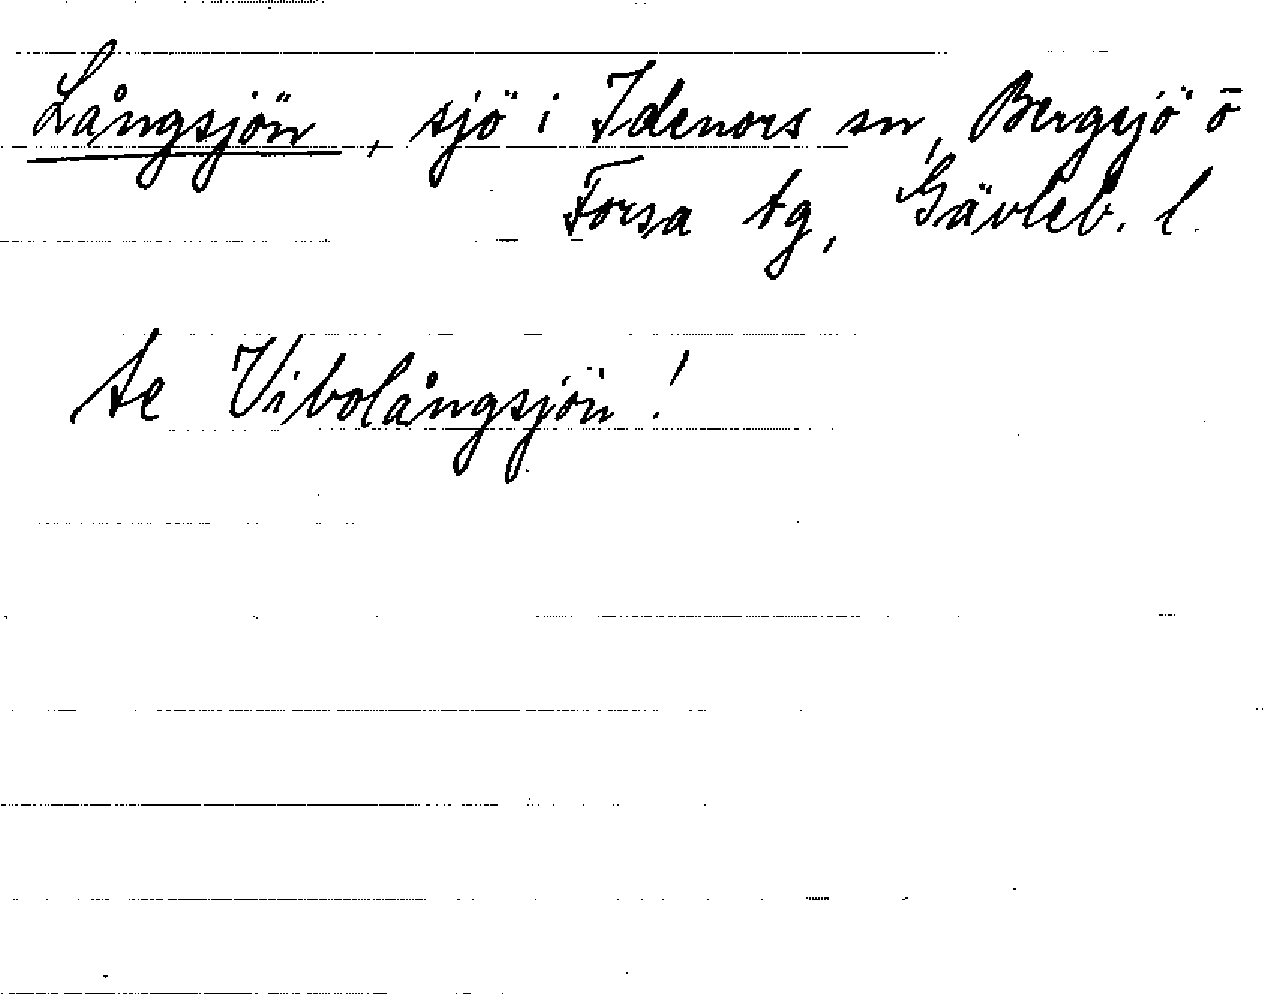 Långsjön, sjö i Idenors sn, Bergsjö o
Forsa tg, Gävleb. l.
Se Vibolångsjön!